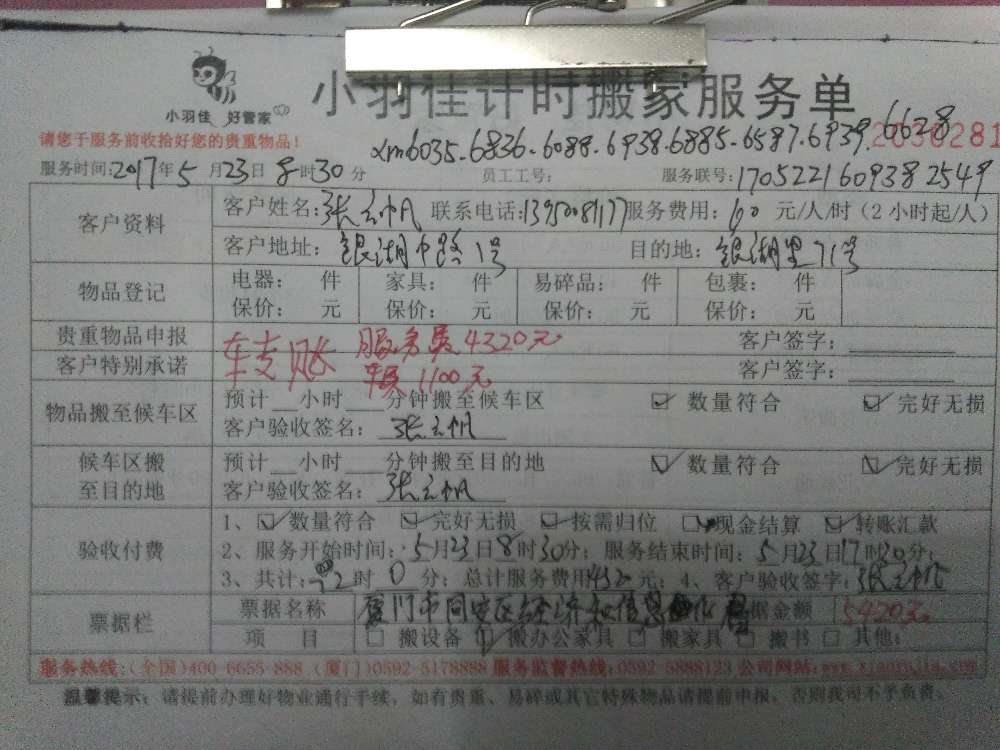 小羽佳 好管家
小羽佳计时搬家服务单
请您于服务前收拾好您的贵重物品!
xm6035.6836.6088.6938.6885.6587.6939.6628
服务时间:2017年5月23日8时30分 员工工号: 服务联号:1705221609382549
客户资料
客户姓名:张云帆 联系电话:13950081177 服务费用:60元/人/时(2小时起/人)
客户地址:银湖中路1号 目的地:银湖里71号
物品登记
电器: 件 家具: 件 易碎品: 件 包裹: 件
保价: 元 保价: 元 保价: 元 保价: 元
贵重物品申报 客户签字:
客户特别承诺 客户签字:
服务费4320元
1100元
物品搬至候车区
预计__小时___分钟搬至候车区 数量符合 完好无损
客户验收签名:张云帆
候车区搬至目的地
预计__小时___分钟搬至目的地 数量符合 完好无损
客户验收签名:张云帆
验收付费
1、数量符合 完好无损 按需归位 现金结算 转账汇款
2、服务开始时间:5月23日8时30分;服务结束时间:5月23日17时30分;
3、共计:72时0分;总计服务费用4320元;4、客户验收签字:张云帆
票据栏
票据名称 厦门市同安区经济和信息化局 票据金额 5420元
项 目 搬设备 搬办公家具 搬家具 搬书 其他:
服务热线:(全国)400-6655-888 (厦门)0592-5178888 服务监督热线:0592-5888123 公司网站:www.xiaoyujia.com
温馨提示:请提前办理好物业通行手续,如有贵重、易碎或其它特殊物品请提前申报,否则我司不予负责。